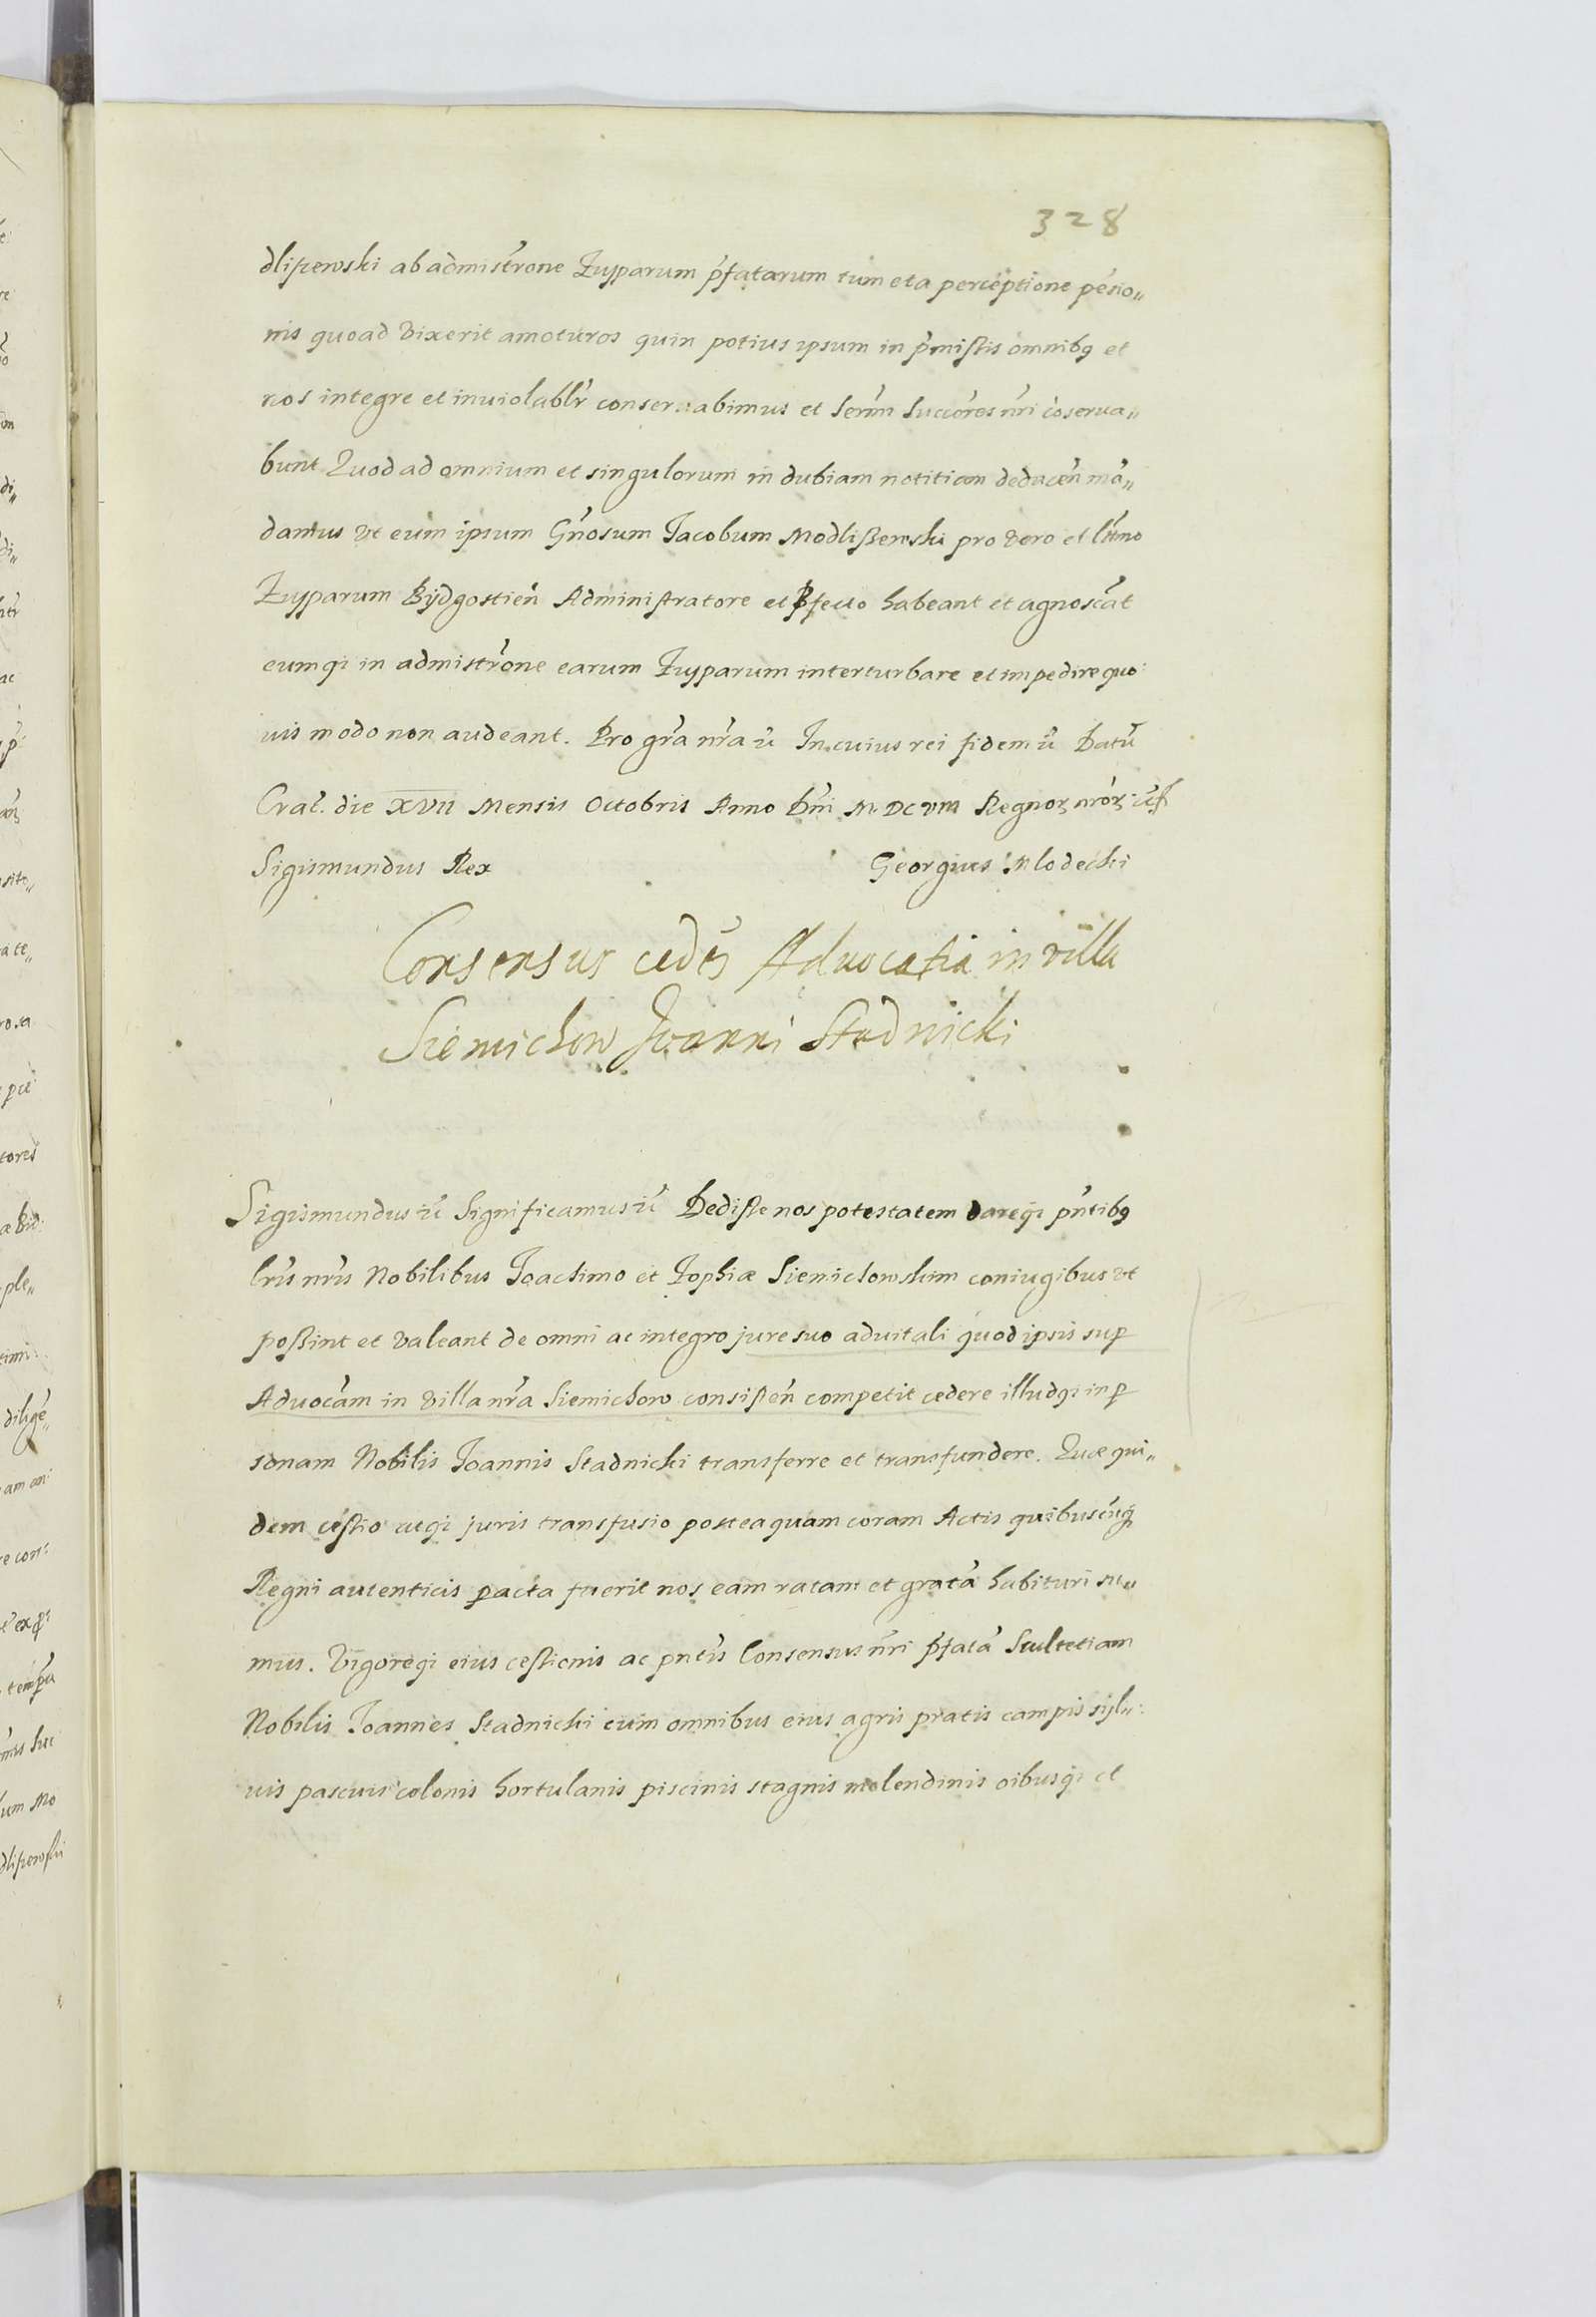 328
dlißewski ab admistrõne Zupparum p̃fatarum tum et a perceptione pẽsio„
nis quoad vixerit amoturos quin potius ipsum in p̃missis omnibꝯ et
nos integre et inuiolablr̃ conseruabimus et Serm̃ Succores nr̃i cõserua„
bunt Quod ad omnium et singulorum in dubiam notitiam deducen̄ mã„
damus vt eum ipsum Gñosum Jacobum Modlißewski pro vero et ltĩmo
Zupparum Bÿdgostien̄ Administratore et p̃fecto habeant et agnoscãt
eumqȝ in admistrõne earum Zupparum interturbare et impedire quo:
uis modo non audeant. Pro gr̃a nr̃a ũ In cuius rei fidem ũ Datũ
Crac. die XVII Mensis Octobris Anno Dñi M. DC VIII Regnoꝝ nr̃oꝝ ũt
Sigismundus Rex Georgius Mlodecki
Consensus cedẽ Aduocatia in villa
Siemichow Joanni Stadnicki
Sigismundus ũ Significamus ũ Dedisse nos potestatem dareqȝ pñtibꝯ
lr̃is nr̃is Nobilibus Joachimo et Zophiæ Siemichowskim coniugibus vt
poßint et valeant de omni ac integro jure suo aduitali quod ipsis suꝑ
Aduocãm in villa nr̃a Siemichow consisten̄ competit cedere illudqȝ in ꝑ
sonam Nobilis Joannis Stadnicki transferre et transfundere. Quæ qui„
dem ceßio acqȝ juris transfusio posteaquam coram Actis quibuscũqȝ
Regni autenticis ꝑacta fuerit nos eam ratam et gratã habituri su„
mus. Vigoreqȝ eius ceßionis ac pntis Consensus nr̃i p̃fatã Scultetiam
Nobilis Joannes Stadnicki cum omnibus eius agris pratis campis sÿl„
uis pascuis colonis hortulanis piscinis stagnis molendinis oibusqȝ et